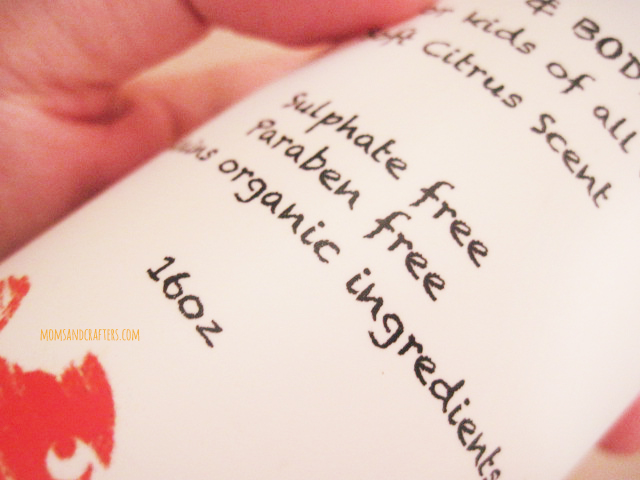 & BODY
kids of all
Soft Citrus Scent
Sulphate free
Paraben free
organic ingredients
16oz
MOMSANDCRAFTERS.COM